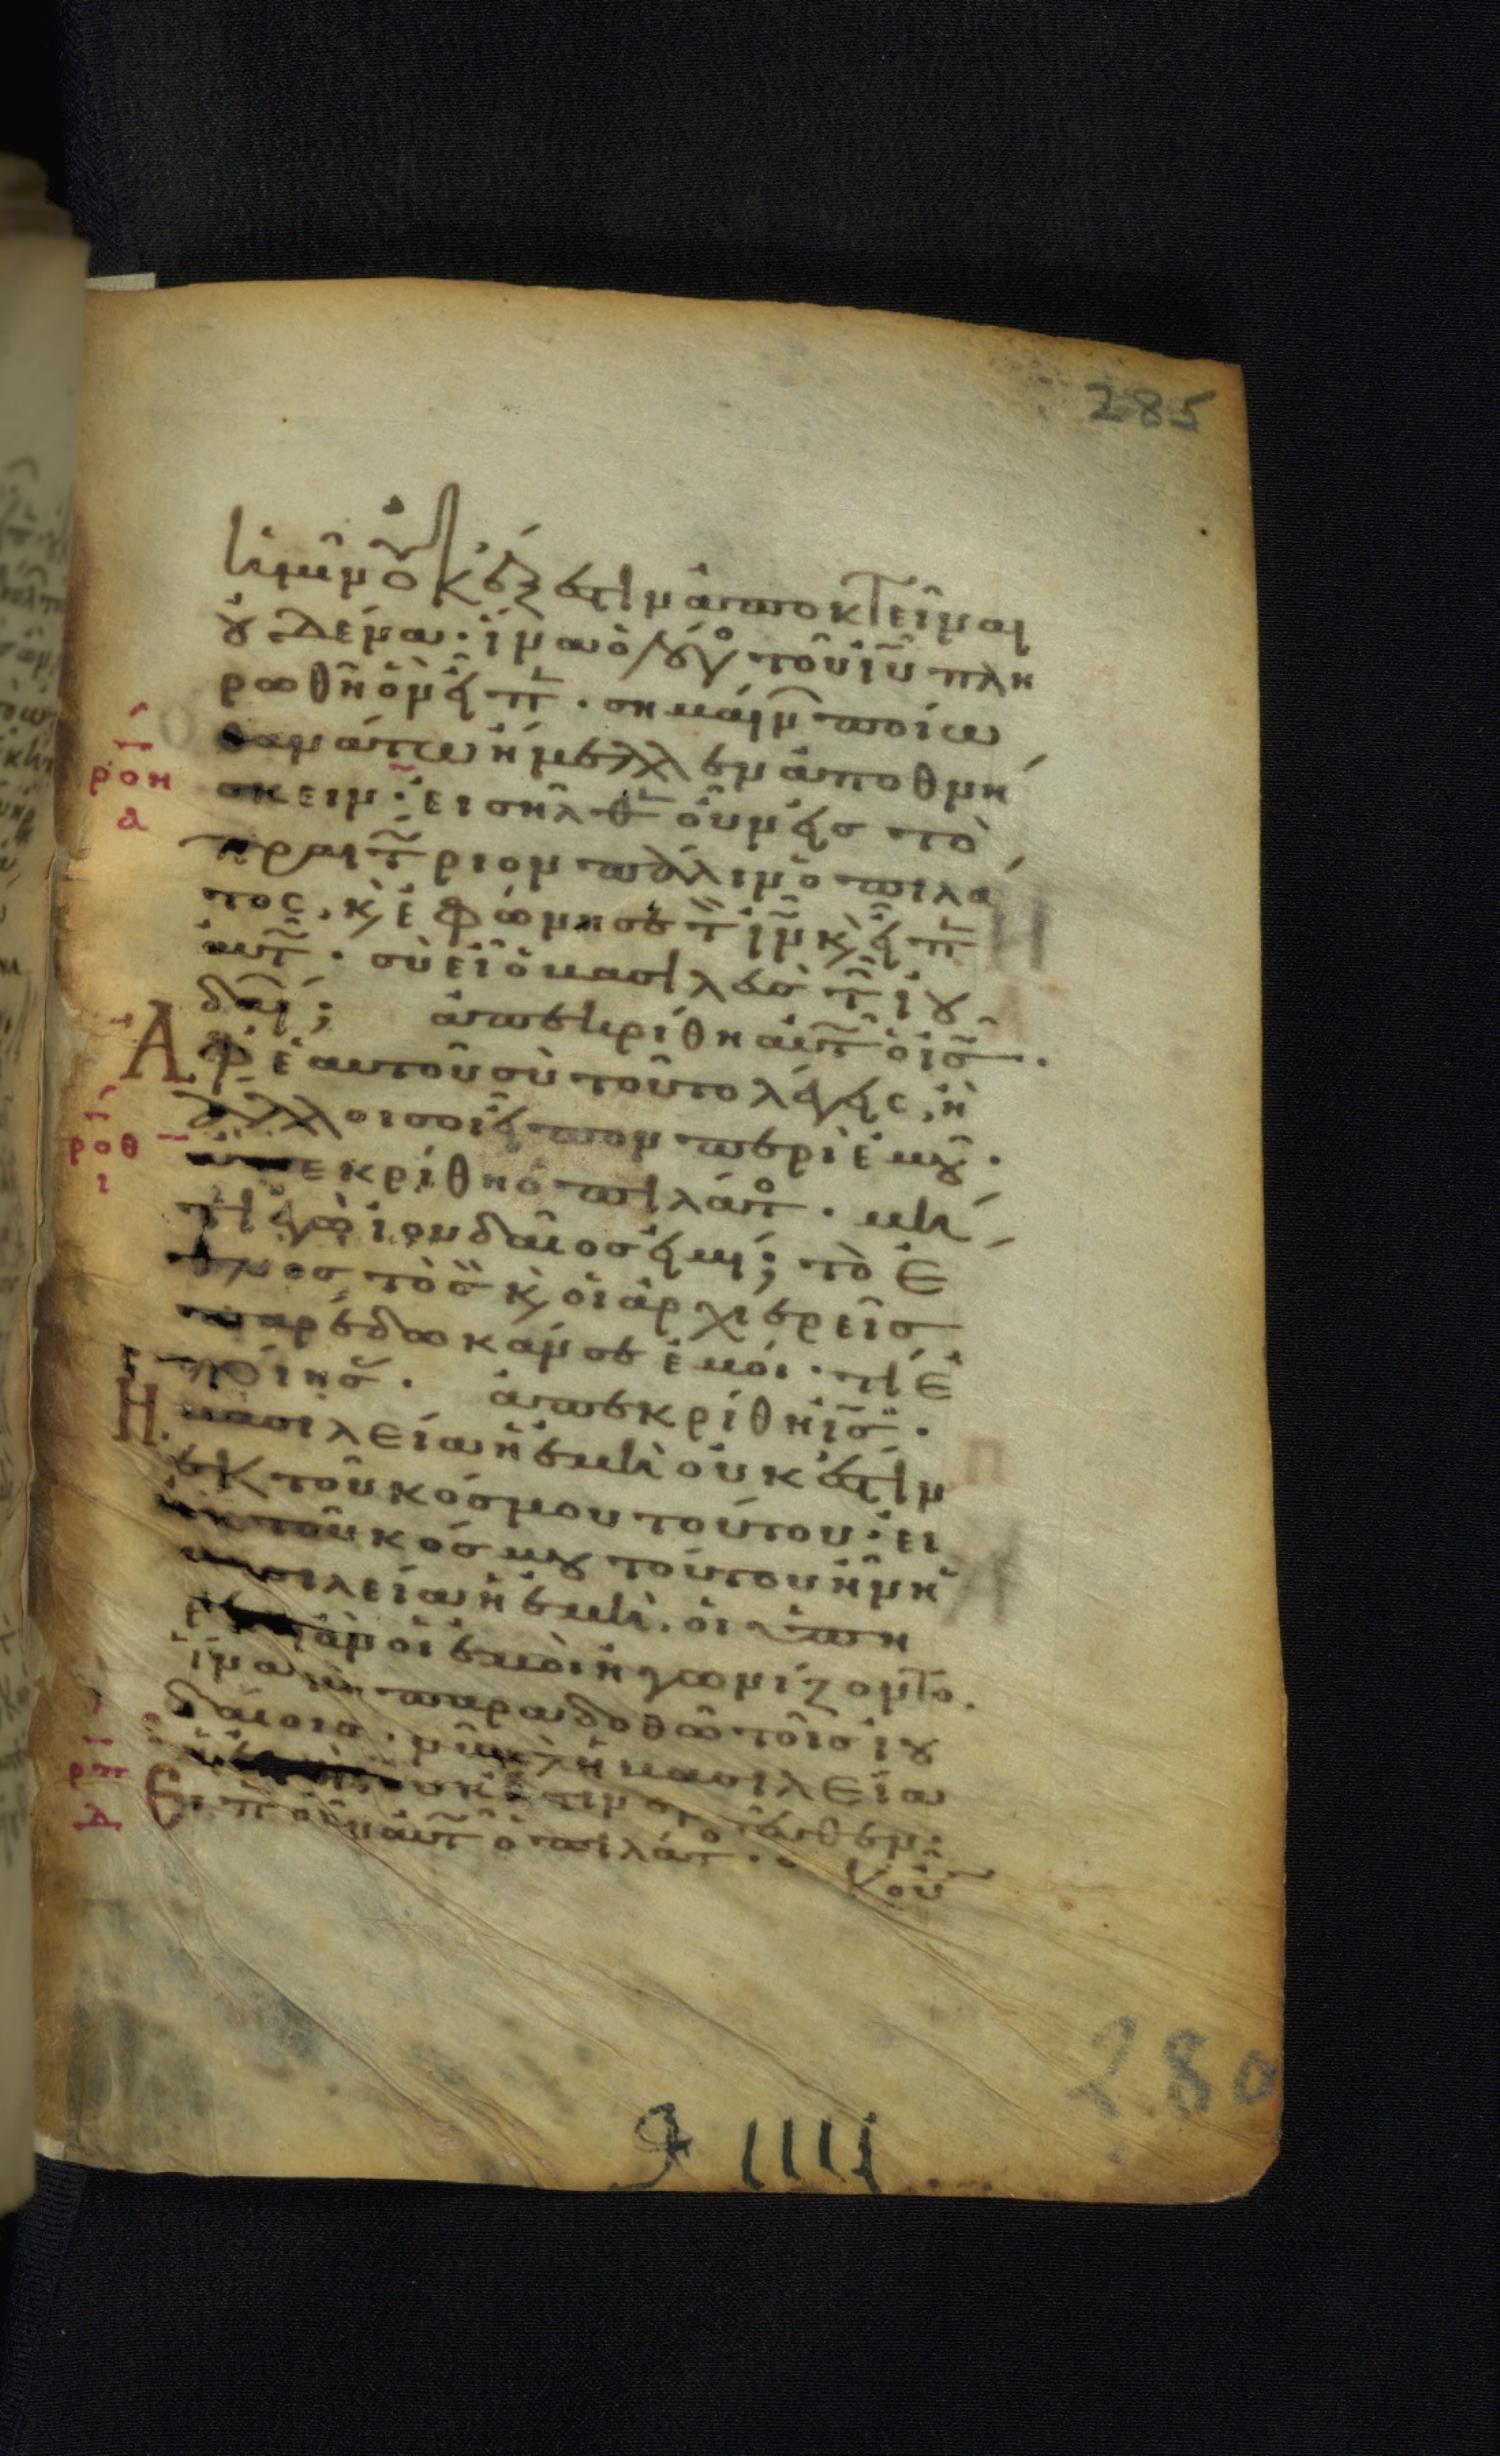 285
ἡμῖν οὐκ ἔξεστιν ἀποκτεῖναι
ουδένα· ἵνα ὁ λόγο τοῦ ιυ πλη
ρωθῆ ὃν εἶπ· σημαίν ποίω
θανάτω ἤμελλεν ἀποθνή
ροη
σκειν· εισῆλθ οὖν εἰσ τὸ
α
πραιτριον πάλιν ὁ πιλα
τος, κ ἐφώνησε τ ιν κ εἶπ
αυτ· σὺ εἶ ὁ βασιλεὺσ τ ιου
δαί; ἀπεκρίθη αὐτ ὁ ισ·
Αφ ἑαυτοῦ σὺ τοῦτο λέγεις, ἢ
ἄλλοι σοι εἶπον περὶ ἐμοῦ·
ροθ
ἀπεκρίθη ὁ πιλάτο· μή
ι
τι ἐγὼ ἰουδαῖοσ εἰμι; τὸ ἔ
θνος τὸ σ κ οἱ ἀρχιερεῖσ
παρέδωκάν σε ἐμοί· τί ἐ
ποίησ· ἀπεκρίθη ισ·
Η βασιλεία ἡ ἐμὴ οὐκ ἔστιν
ἐκ τοῦ κόσμου τούτου· ει
ἐκ τοῦ κόσμου τούτου ἦν ἡ
βασιλεία ἡ ἐμὴ, οἱ ὑπη
ρέται ἂν οἱ ἐμοὶ ἠγωνίζοντο.
ἵνα μὴ παραδοθῶ τοῖσ ιου
δαίοισ· νῦν δὲ ἡ βασιλεία
ρπ
ἡ ἐμὴ οὐκ ἔστιν ἐντεῦθεν·
Ειπ οὖν αὐτ ὁ πιλάτο· οὐκοῦ
280